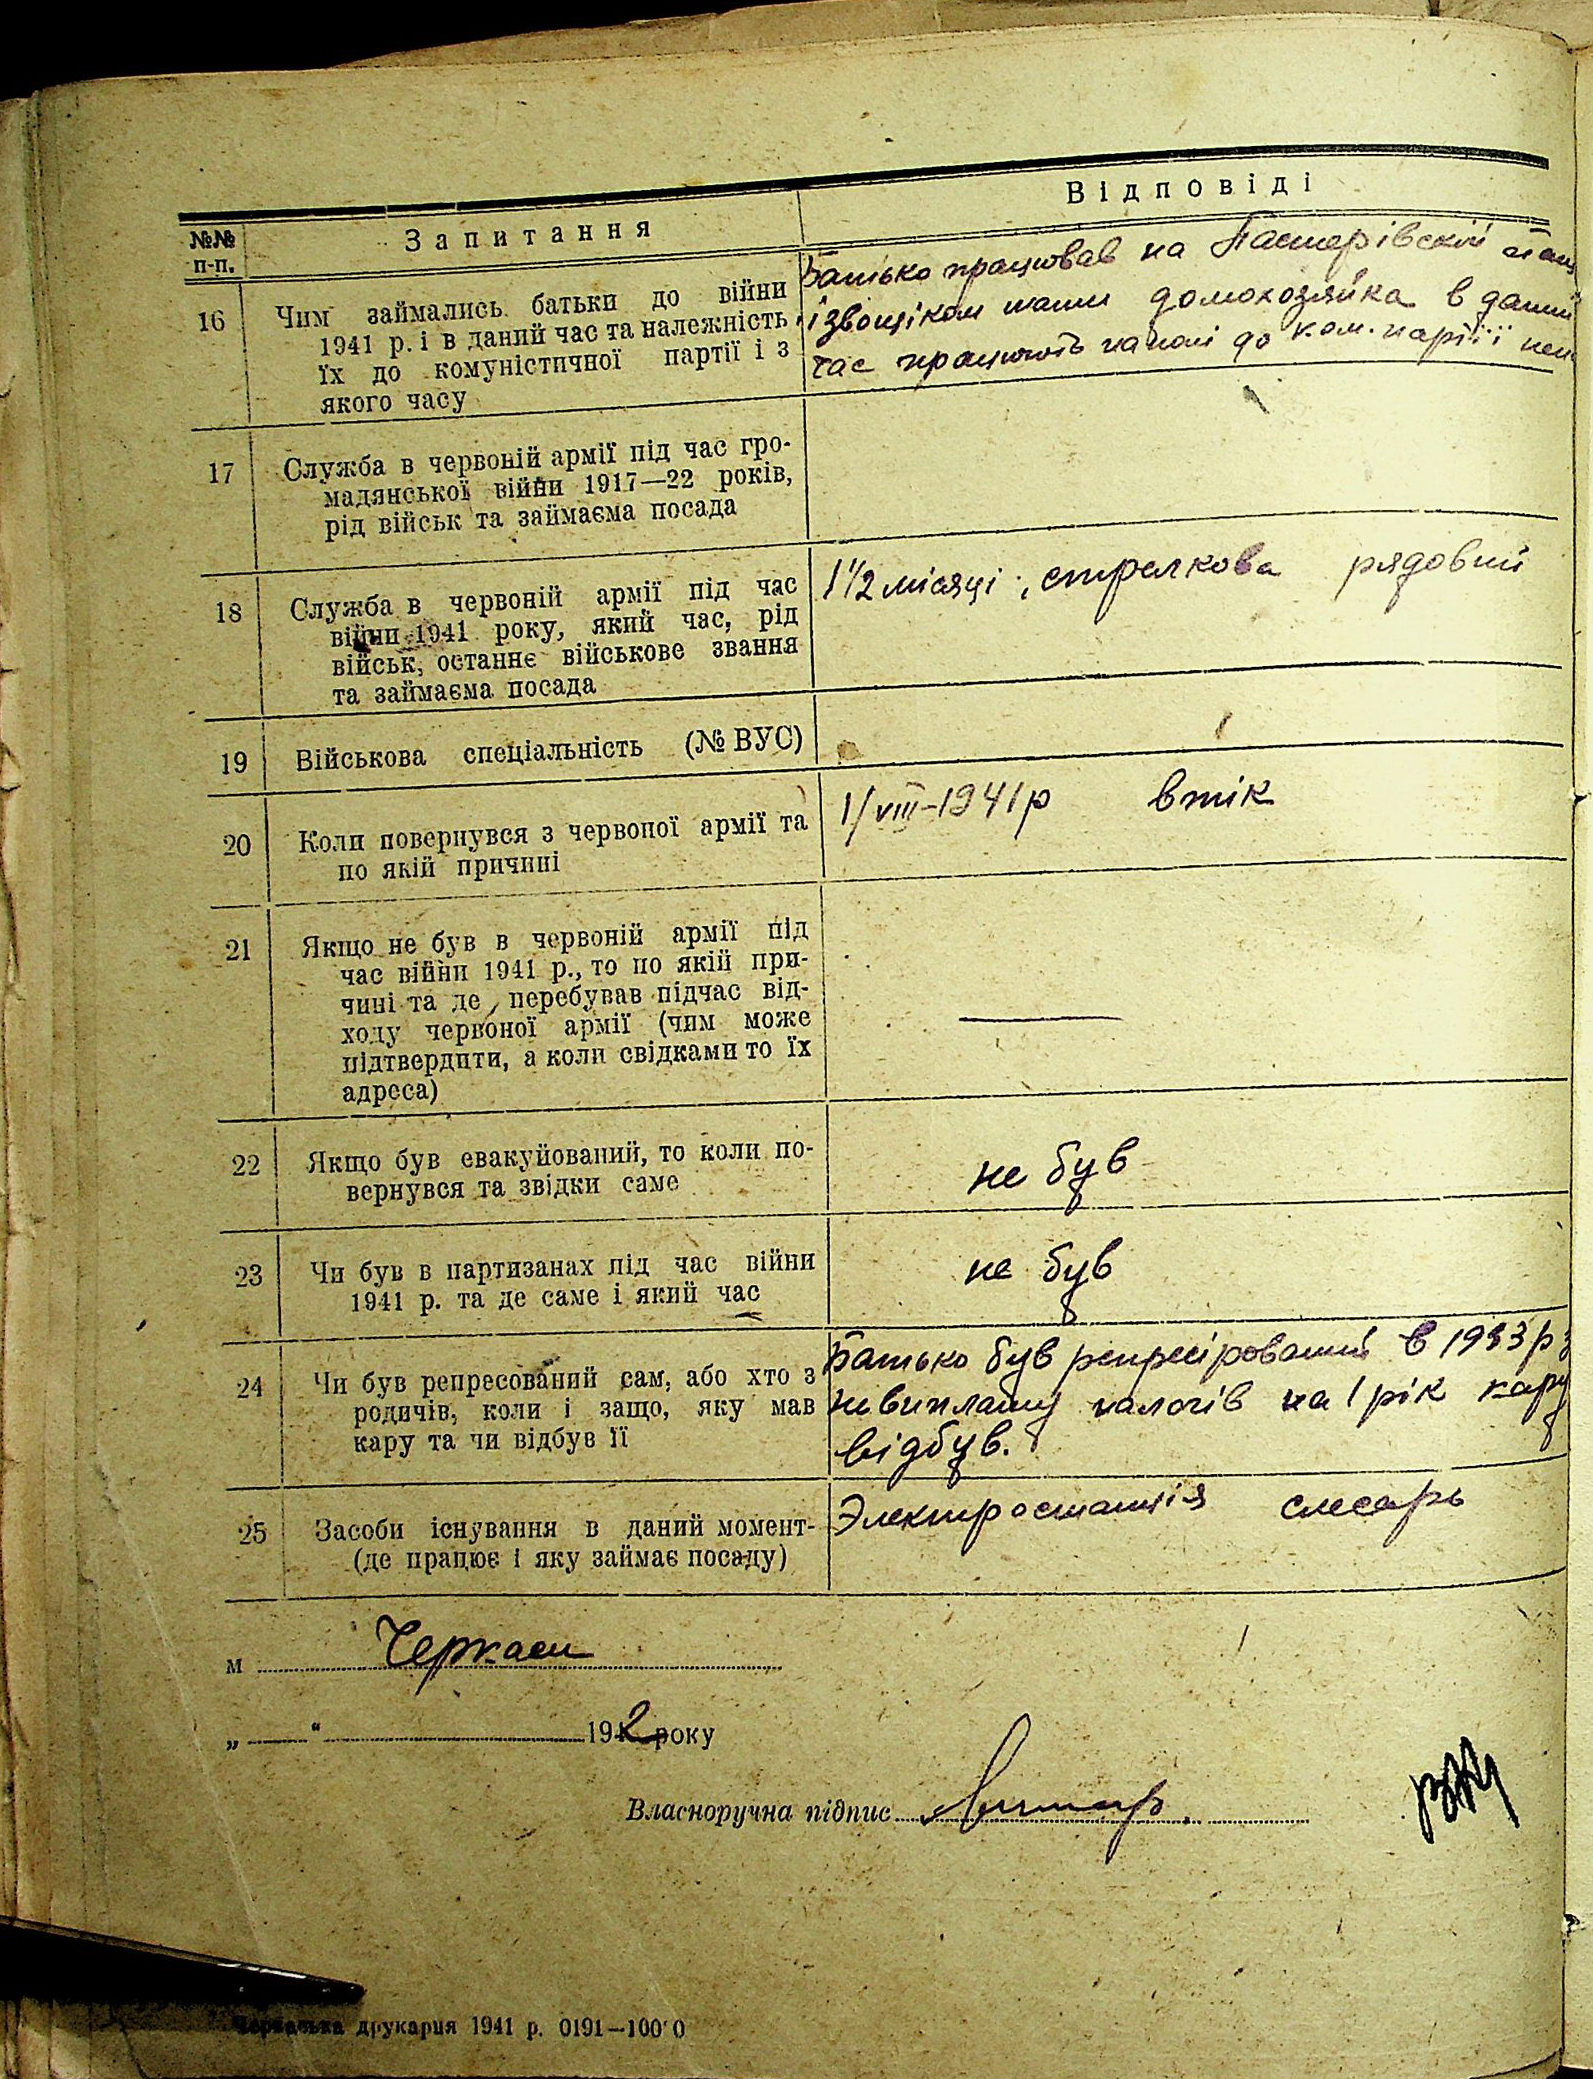 №№ п-п.
Запитання
Відповіді
16
Чим займались батьки до війни
1941 р. і в даний час та належність
їх до комуністичної партії і з
якого часу
Батько працював на Пастерівскій
ізвощіком мати домохозяйка в даний
час працюють на полі до ком. партії
17
Служба в червоній армії під час гро-
мадянської війни 1917—22 років,
рід військ та займаєма посада
18
Служба в червоній армії під час
війни 1941 року, який час, рід
військ, останнє військове звання
та займаєма посада
1 1/2 місяці, стрелкова рядовий
19
Військова спеціальність (№ ВУС)
20
Коли повернувся з червоної армії та
по якій причині
1/VIII-1941р втік
21
Якщо не був в червоній армії під
час війни 1941 р., то по якій при-
чині та де перебував підчас від-
ходу червоної армії (чим може
підтвердити, а коли свідками то їх
адреса)
—
22
Якщо був евакуйований, то коли по-
вернувся та звідки саме
не був
23
Чи був в партизанах під час війни
1941 р. та де саме і який час
не був
24
Чи був репресований сам, або хто з
родичів, коли і защо, яку мав
кару та чи відбув її
Батько був репресірований в 1933 р з
невиплату налогів на 1 рік кару
відбув.
25
Засоби існування в даний момент-
(де працює і яку займає посаду)
Электростанція слесарь
м Черкаси
„ “ 1942 року
Власноручна підпис
Черкаська друкарня 1941 р. 0191—100 0